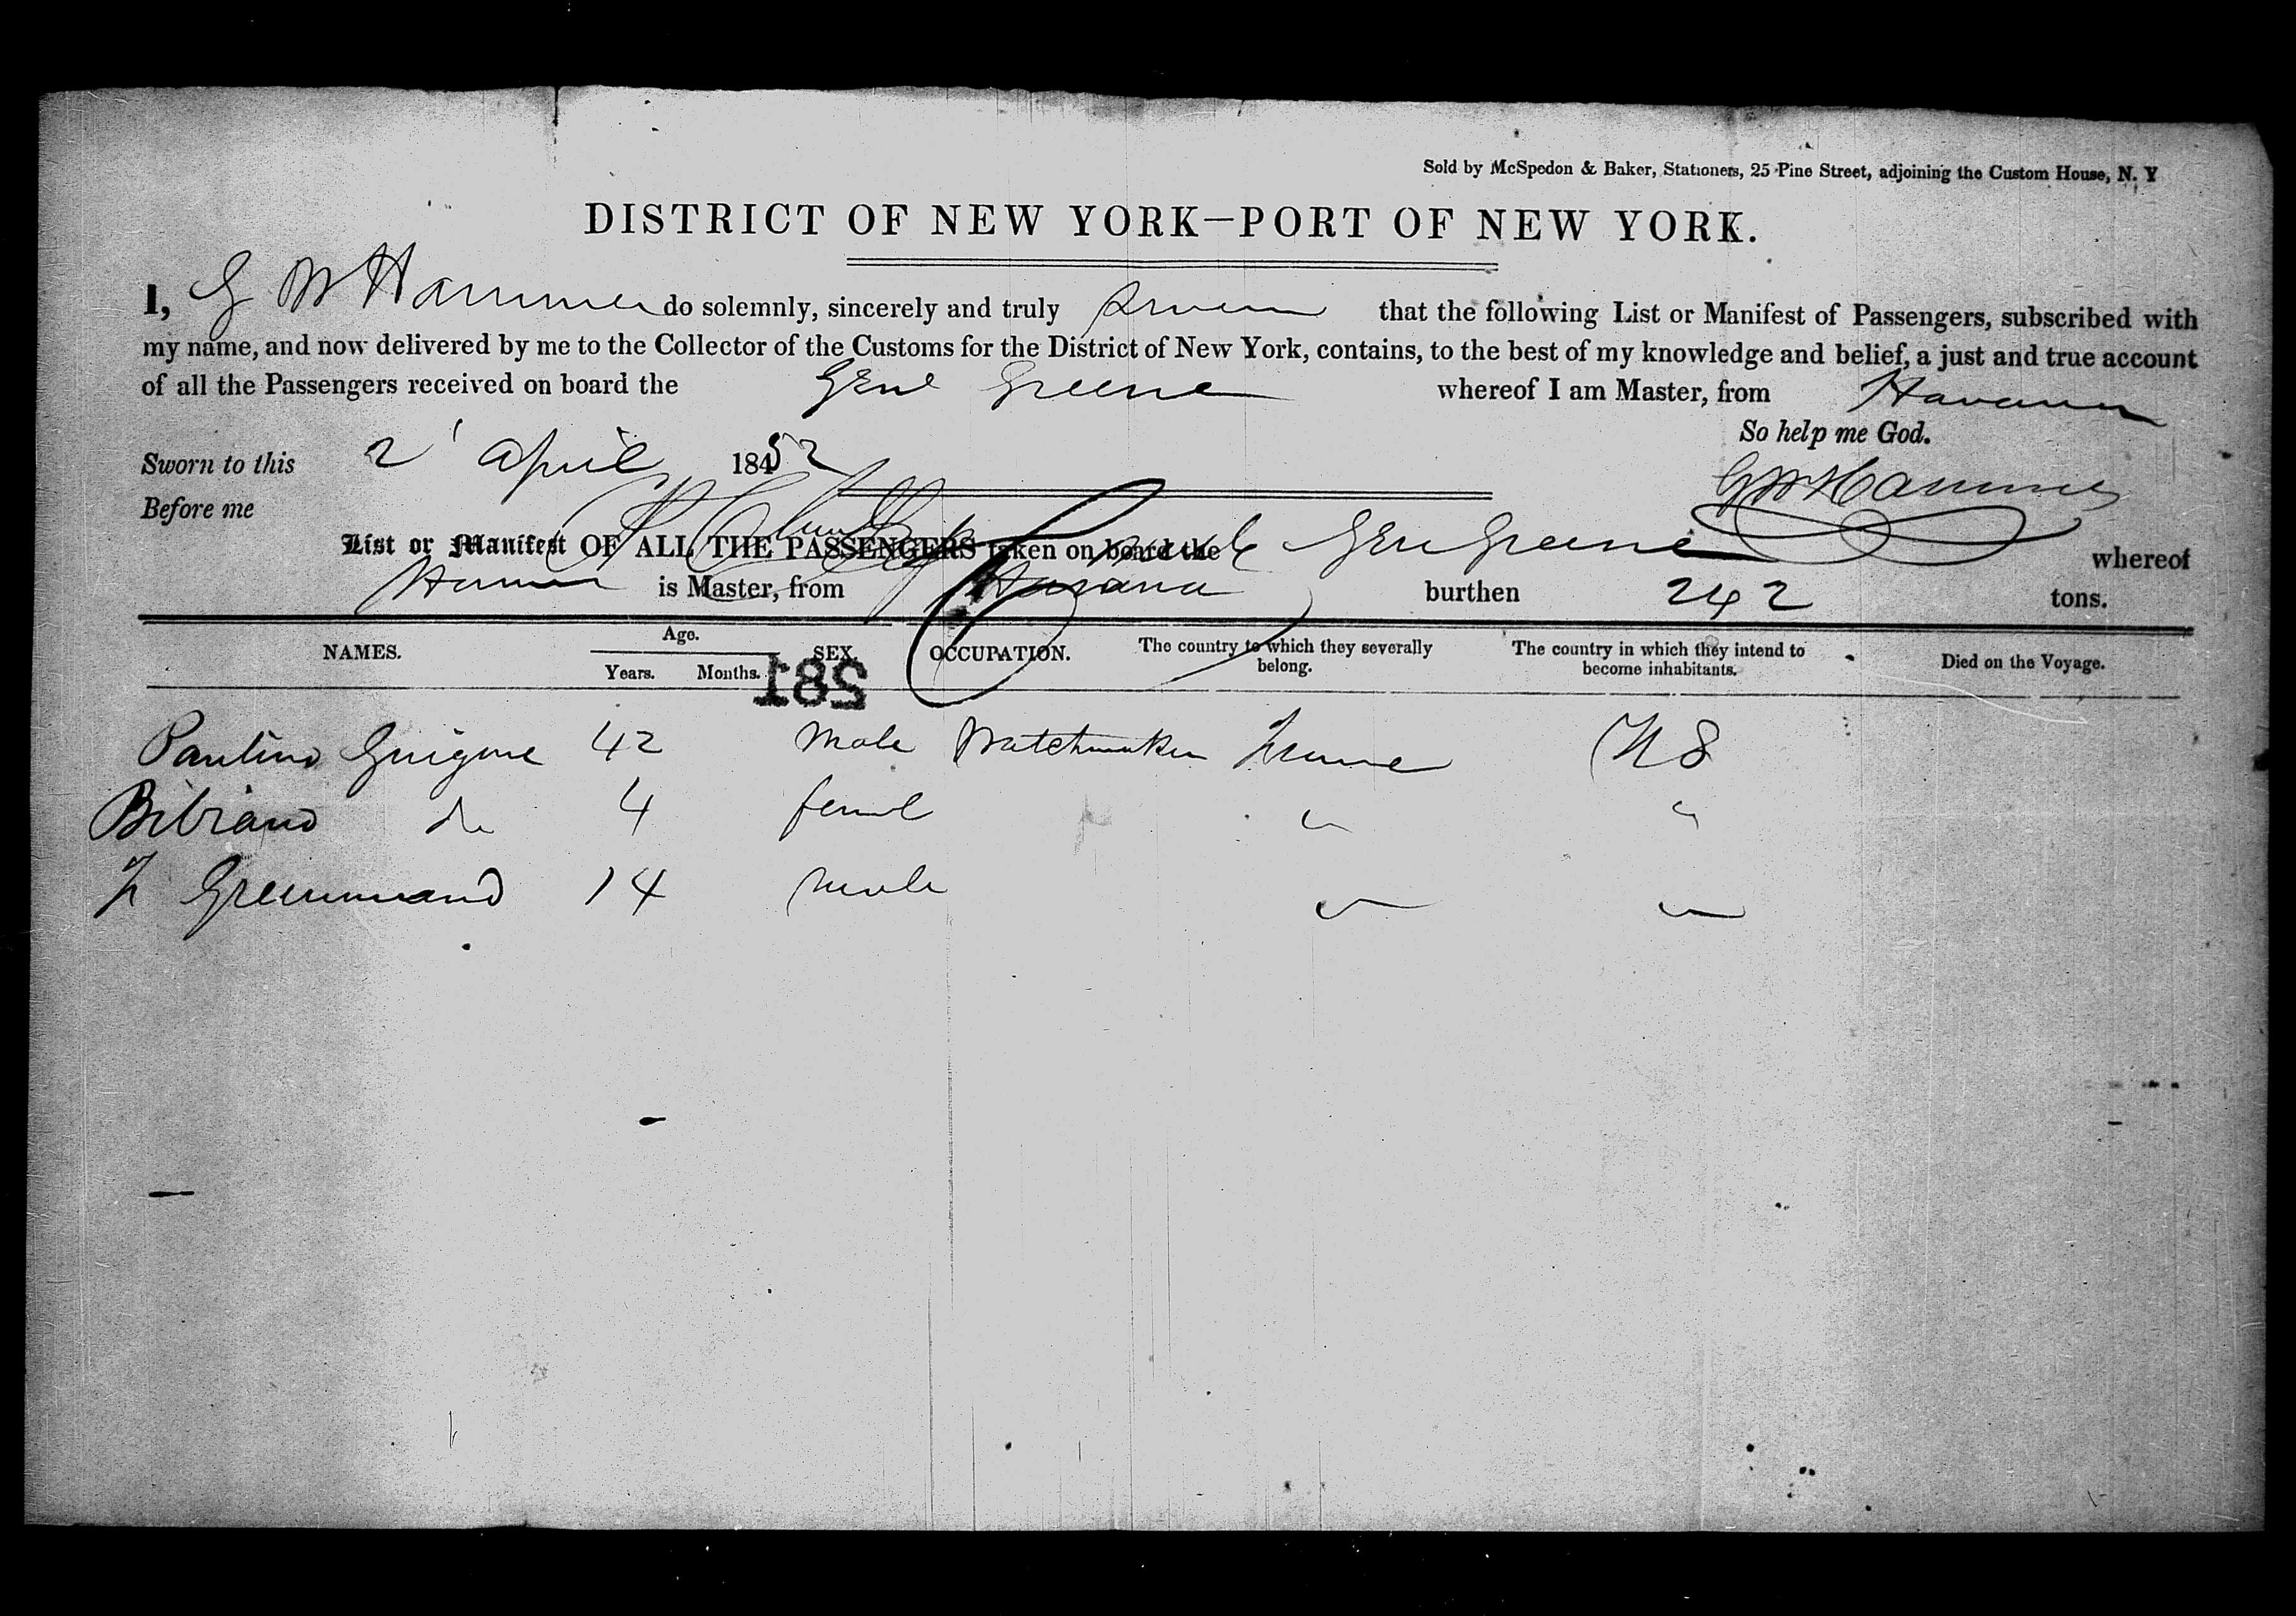 Sold by McSpedon & Baker, Stationers, 25 Pine Street, adjoining the Custom House, N. Y
DISTRICT OF NEW YORK—PORT OF NEW YORK.
I, G W Hammer do solemnly, sincerely and truly swear that the following List or Manifest of Passengers, subscribed with
my name, and now delivered by me to the Collector of the Customs for the District of New York, contains, to the best of my knowledge and belief, a just and true account
of all the Passengers received on board the Genl Greene whereof I am Master, from Havana
So help me God.
Sworn to this 2 April 1852
GW Hammer
Before me
List or Manifest OF ALL THE PASSENGERS taken on board the Gen Greene whereof
is Master, from Havana burthen 242 tons.
NAMES. Age. Years. Months. SEX. OCCUPATION. The country to which they severally belong. The country in which they intend to become inhabitants. Died on the Voyage.
281
Paulino 42 Male Watchmaker France U S
Bibiano do 4 femal " "
14 male " "